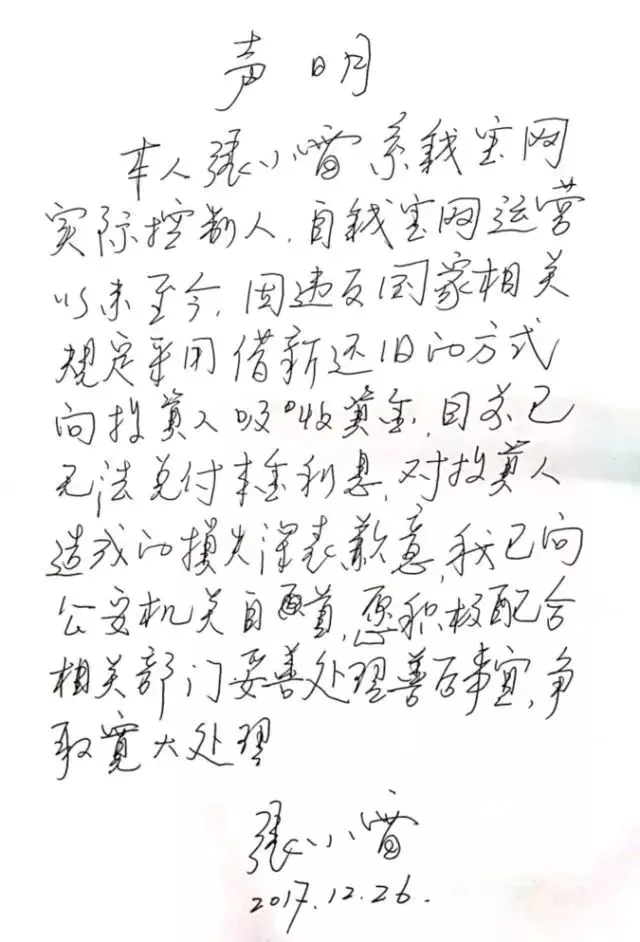 声明
本人張小雷系钱宝网
实际控制人，自钱宝网运营
以来至今，因违反国家相关
规定采用借新还旧的方式
向投資人吸收資金，目前已
无法兑付本金利息，对投資人
造成的损失深表歉意，我已向
公安机关自首，愿积极配合
相关部门妥善处理善后事宜，争
取寬大处理
張小雷
2017.12.26.